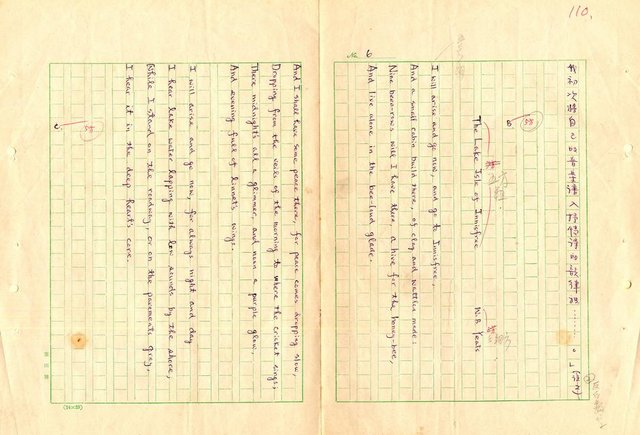 110.
我初次將自己的音樂律入抒情詩的韻律的………。」
B
The Lake Isle of Innisfree
W.B. Yeats
No. 6
I will arise and go now, and go to Innisfree,
And a small cabin build there, of clay and wattles made:
Nine bean-rows will I have there, a hive for the honey-bee,
And live alone in the bee-loud glade.
And I shall have some peace there, for peace comes dropping slow,
Dropping from the veils of the morning to where the cricket sings;
There midnight's all a glimmer, and noon a purple glow,
And evening full of linnet's wings.
I will arise and go now, for always night and day
I hear lake water lapping with low sounds by the shore,
While I stand on the roadway, or on the pavements gray,
I hear it in the deep heart's core.